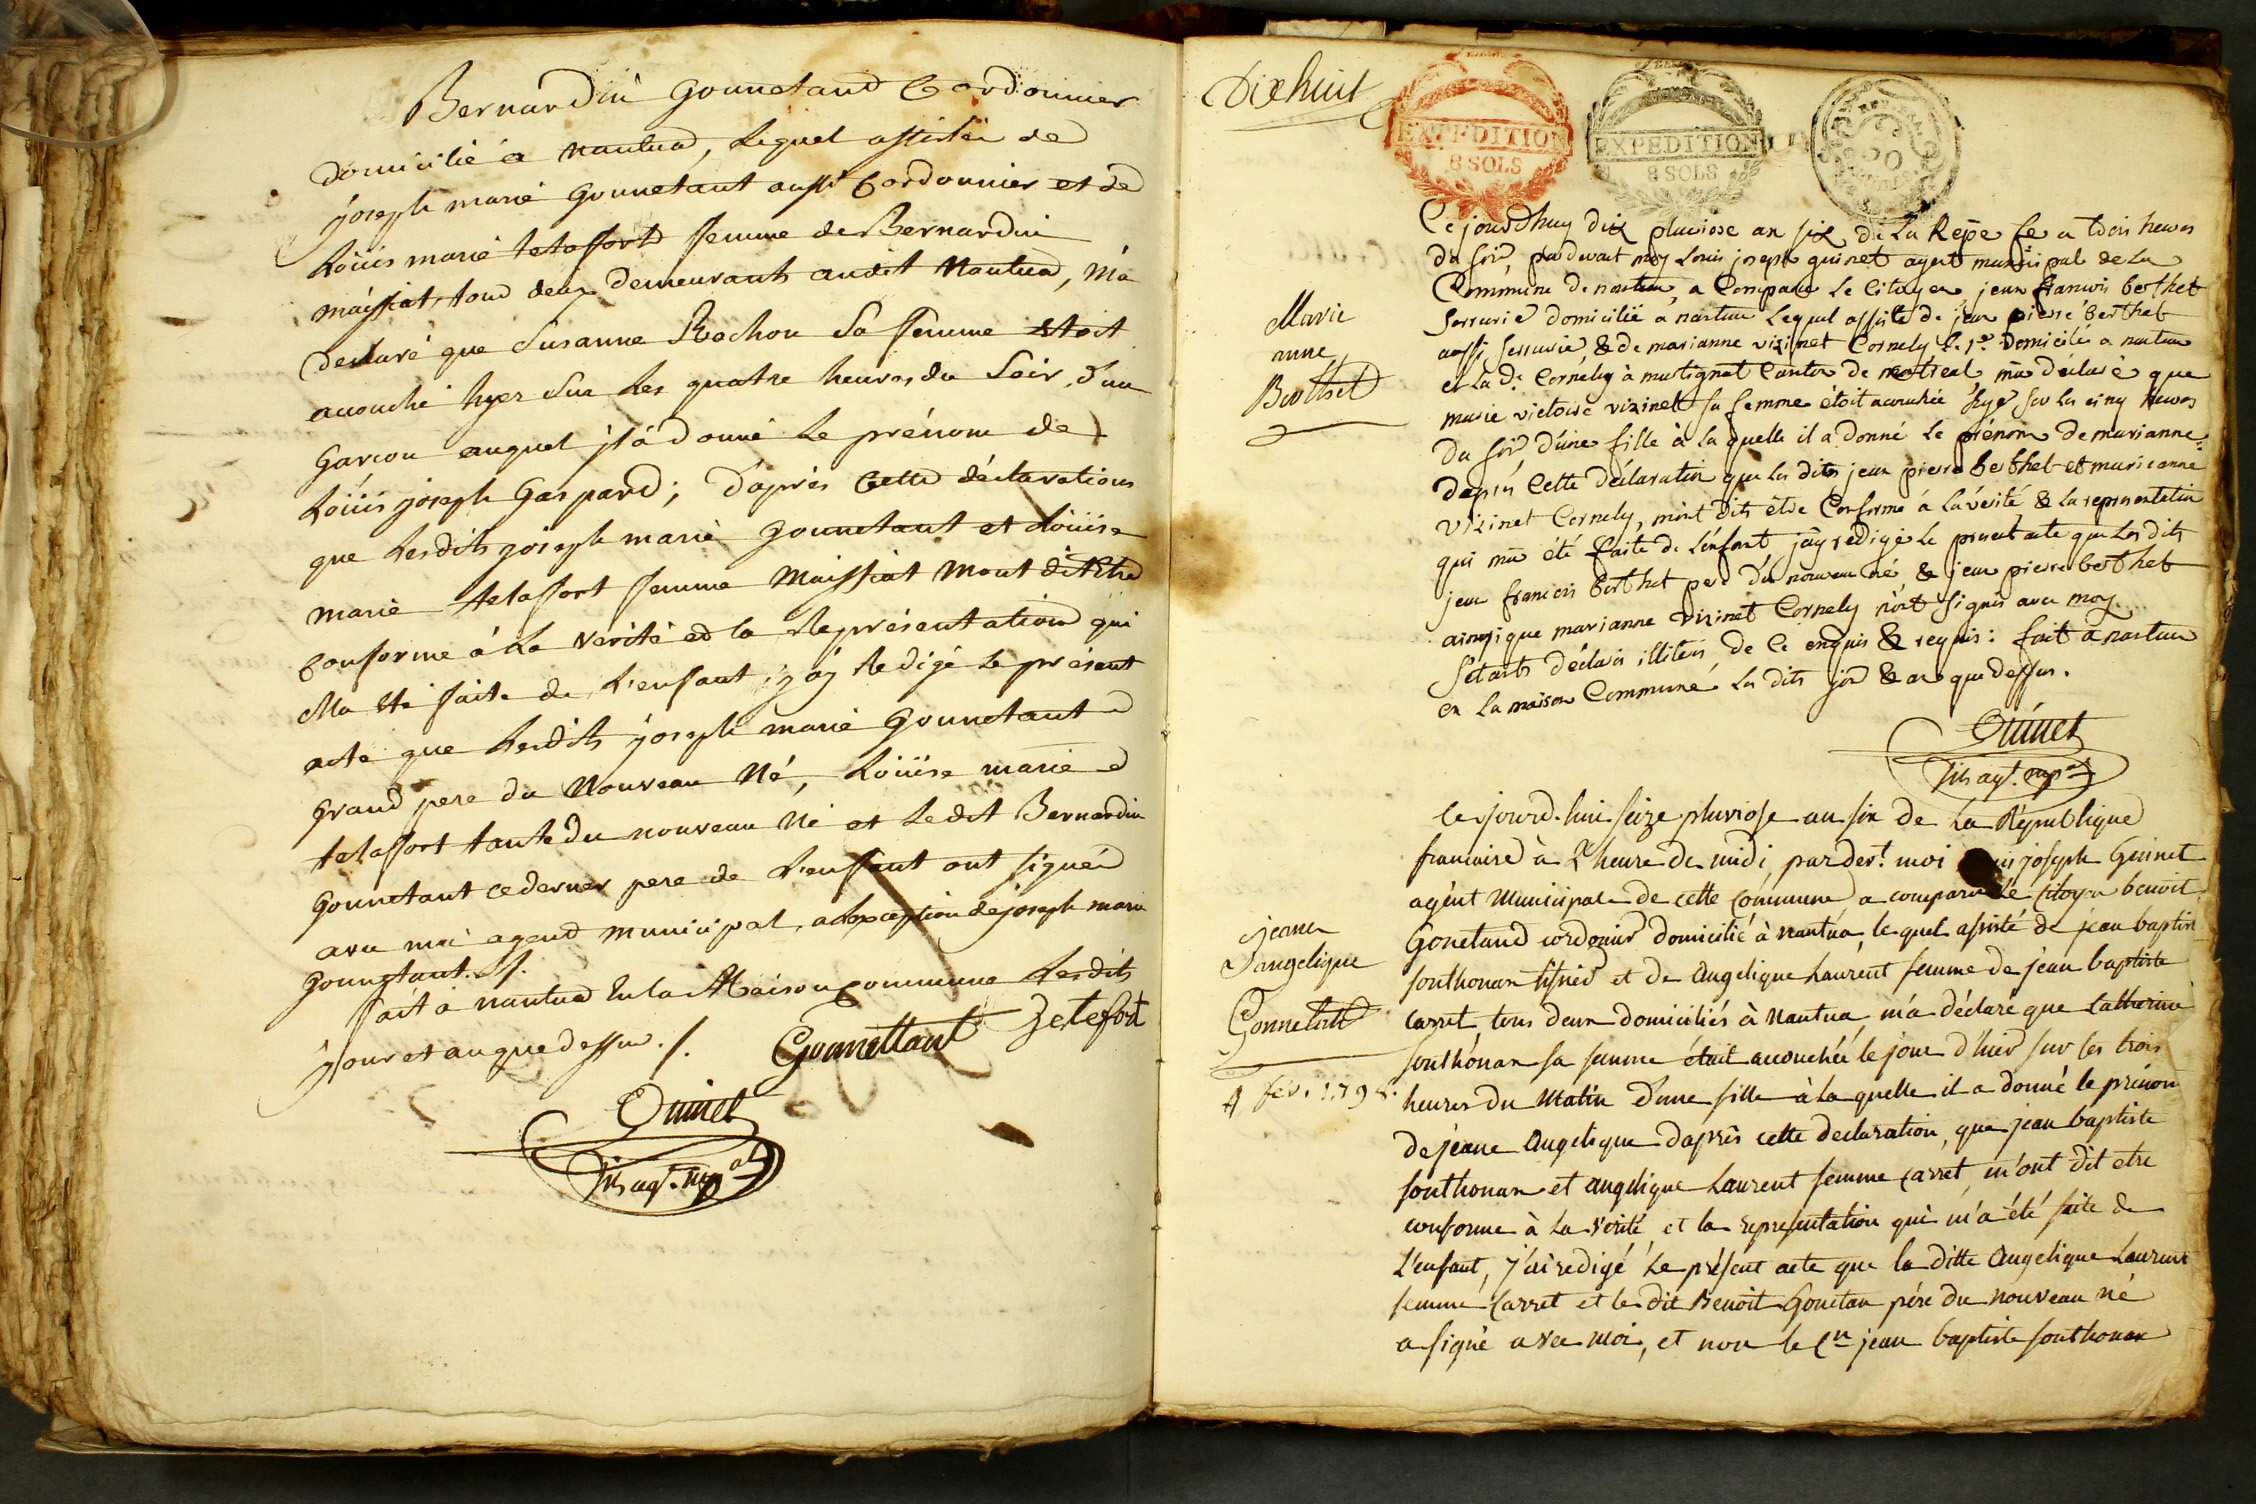 Bernardin Gonnetand Cordonnier
domicilié a nantua, lequel assistée de
joseph marie Gonnetant aussi Cordonnier et de
Loüis marie telafsort femme de Bernardin
maissiat, tous deux demeurants audit Nantua, m'a
declaré que Susanne Rochon sa femme etoit
acouché hyer sur les quatre heures du Soir, d'un
Garcon auquel jl à donné le prénom de
Loüis joseph Gaspard; d'après cette déclarations
que lesdits joseph marie gonnetant et Loüise
marie telassort femme Maissiat mont dit Etre
conforme á la verité et la Représentation qui
Ma été faite de L'enfant, j'ay Redigé le présent
acte que lesdits joseph marie Gonnetant
Grand pere du Nouveau Né, Loüise marie
telassort tante du nouveau Né et ledit Bernardin
Gonnetant cederner pere de L'enfant ont signé
avec moi agend municipal, a lexception de joseph marie
gonnetant. /.
fait à nantua En la Maison commune lesdits
jour et an que dessus. /. Gonnettant Zetefort
Quinet
fils agt. mpal
Dixhuit
EXPEDITION
8 SOLS
EXPEDITION
8 SOLS
Marie
anne
Berthet
Ce jourdhuy dix pluviose an six de La Repe fe a trois heures
du soir pardevant moy Louis joseph quinet agent municipal de La
Commune de nantua, a Comparu Le Citoyen jean francois berthet
Serrurié domicilié a nantua Lequel assisté de jean pierre berthet
aussi Serrurié, & de marianne vizinet Cornely Le 1er. Domicilié a nantua
et La de. Cornely à martignat Canton de montréal m'a déclaré que
marie victoire vizinet sa femme étoit acouchée hyer sur les cinq heures
du soir d'une fille à la quelle il a donné Le prénom de marianne:
d'après Cette déclaration que Les dits jean pierre berthet et marianne
vizinet Cornely, m'ont dits être Conforme á La vérité & La representation
qui m'a été faite de L'enfant jáy rédigé Le present acte que Les dits
jean francois berthet pere du nouveau né, & jean pierre berthet
ainsique marianne vizinet Cornely n'ont signés avec moy
s'étants déclarés illiteris de Ce enquis & requis: fait a nantua
en La maison Commune Les dits jour & an que dessus.
Quinet
fils agt. mpal
Jeane
angelique
Gonnetand
4 fév. 1798.
Ce jourd. hui seize pluviose an six de La République
francaise à 2e heure de midi, par devt. moi joseph Guinet
agent Municipal de cette Commune a comparu Le Citoyen benoit
Gonetand cordonier domicilié à nantua, lequel assisté de jean baptiste
sonthonax et de Angelique Laurent femme de jean baptiste
Carret, tous deux domiciliés à Nantua, m'a déclaré que Catherine
sonthonax sa femme était acouchée le jour d'hier sur les trois
heures du Matin d'une fille à la quelle il a donné le prénon
de jeane Angelique d'après cette declaration, que jean baptiste
sonthonax et angelique Laurent femme Carret, m'ont dit etre
conforme à la vérité, et la representation qui m'a été faite de
L'enfant, j'ai redigé le présent acte que la ditte Angelique Laurent
femme Carret et le dit Benoit Gonetan pére du nouveau né
a signé avec moi, et non le Cn jean baptiste sonthonax